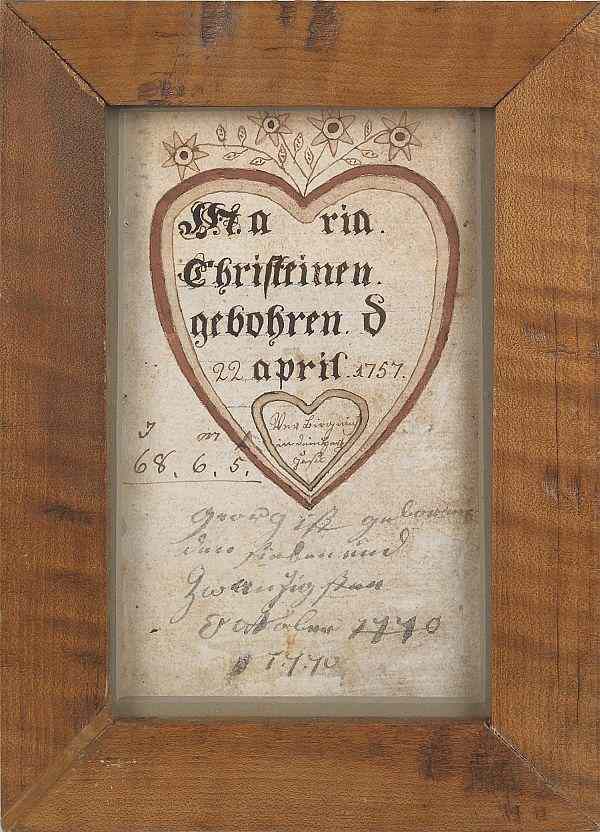 Ma ria.
Christeinen.
gebohren. d
22 april 1757.
in
J m
68. 6. 5.
georg ist gebouren
den sieben und
Zwanzigsten
October 1770
1770